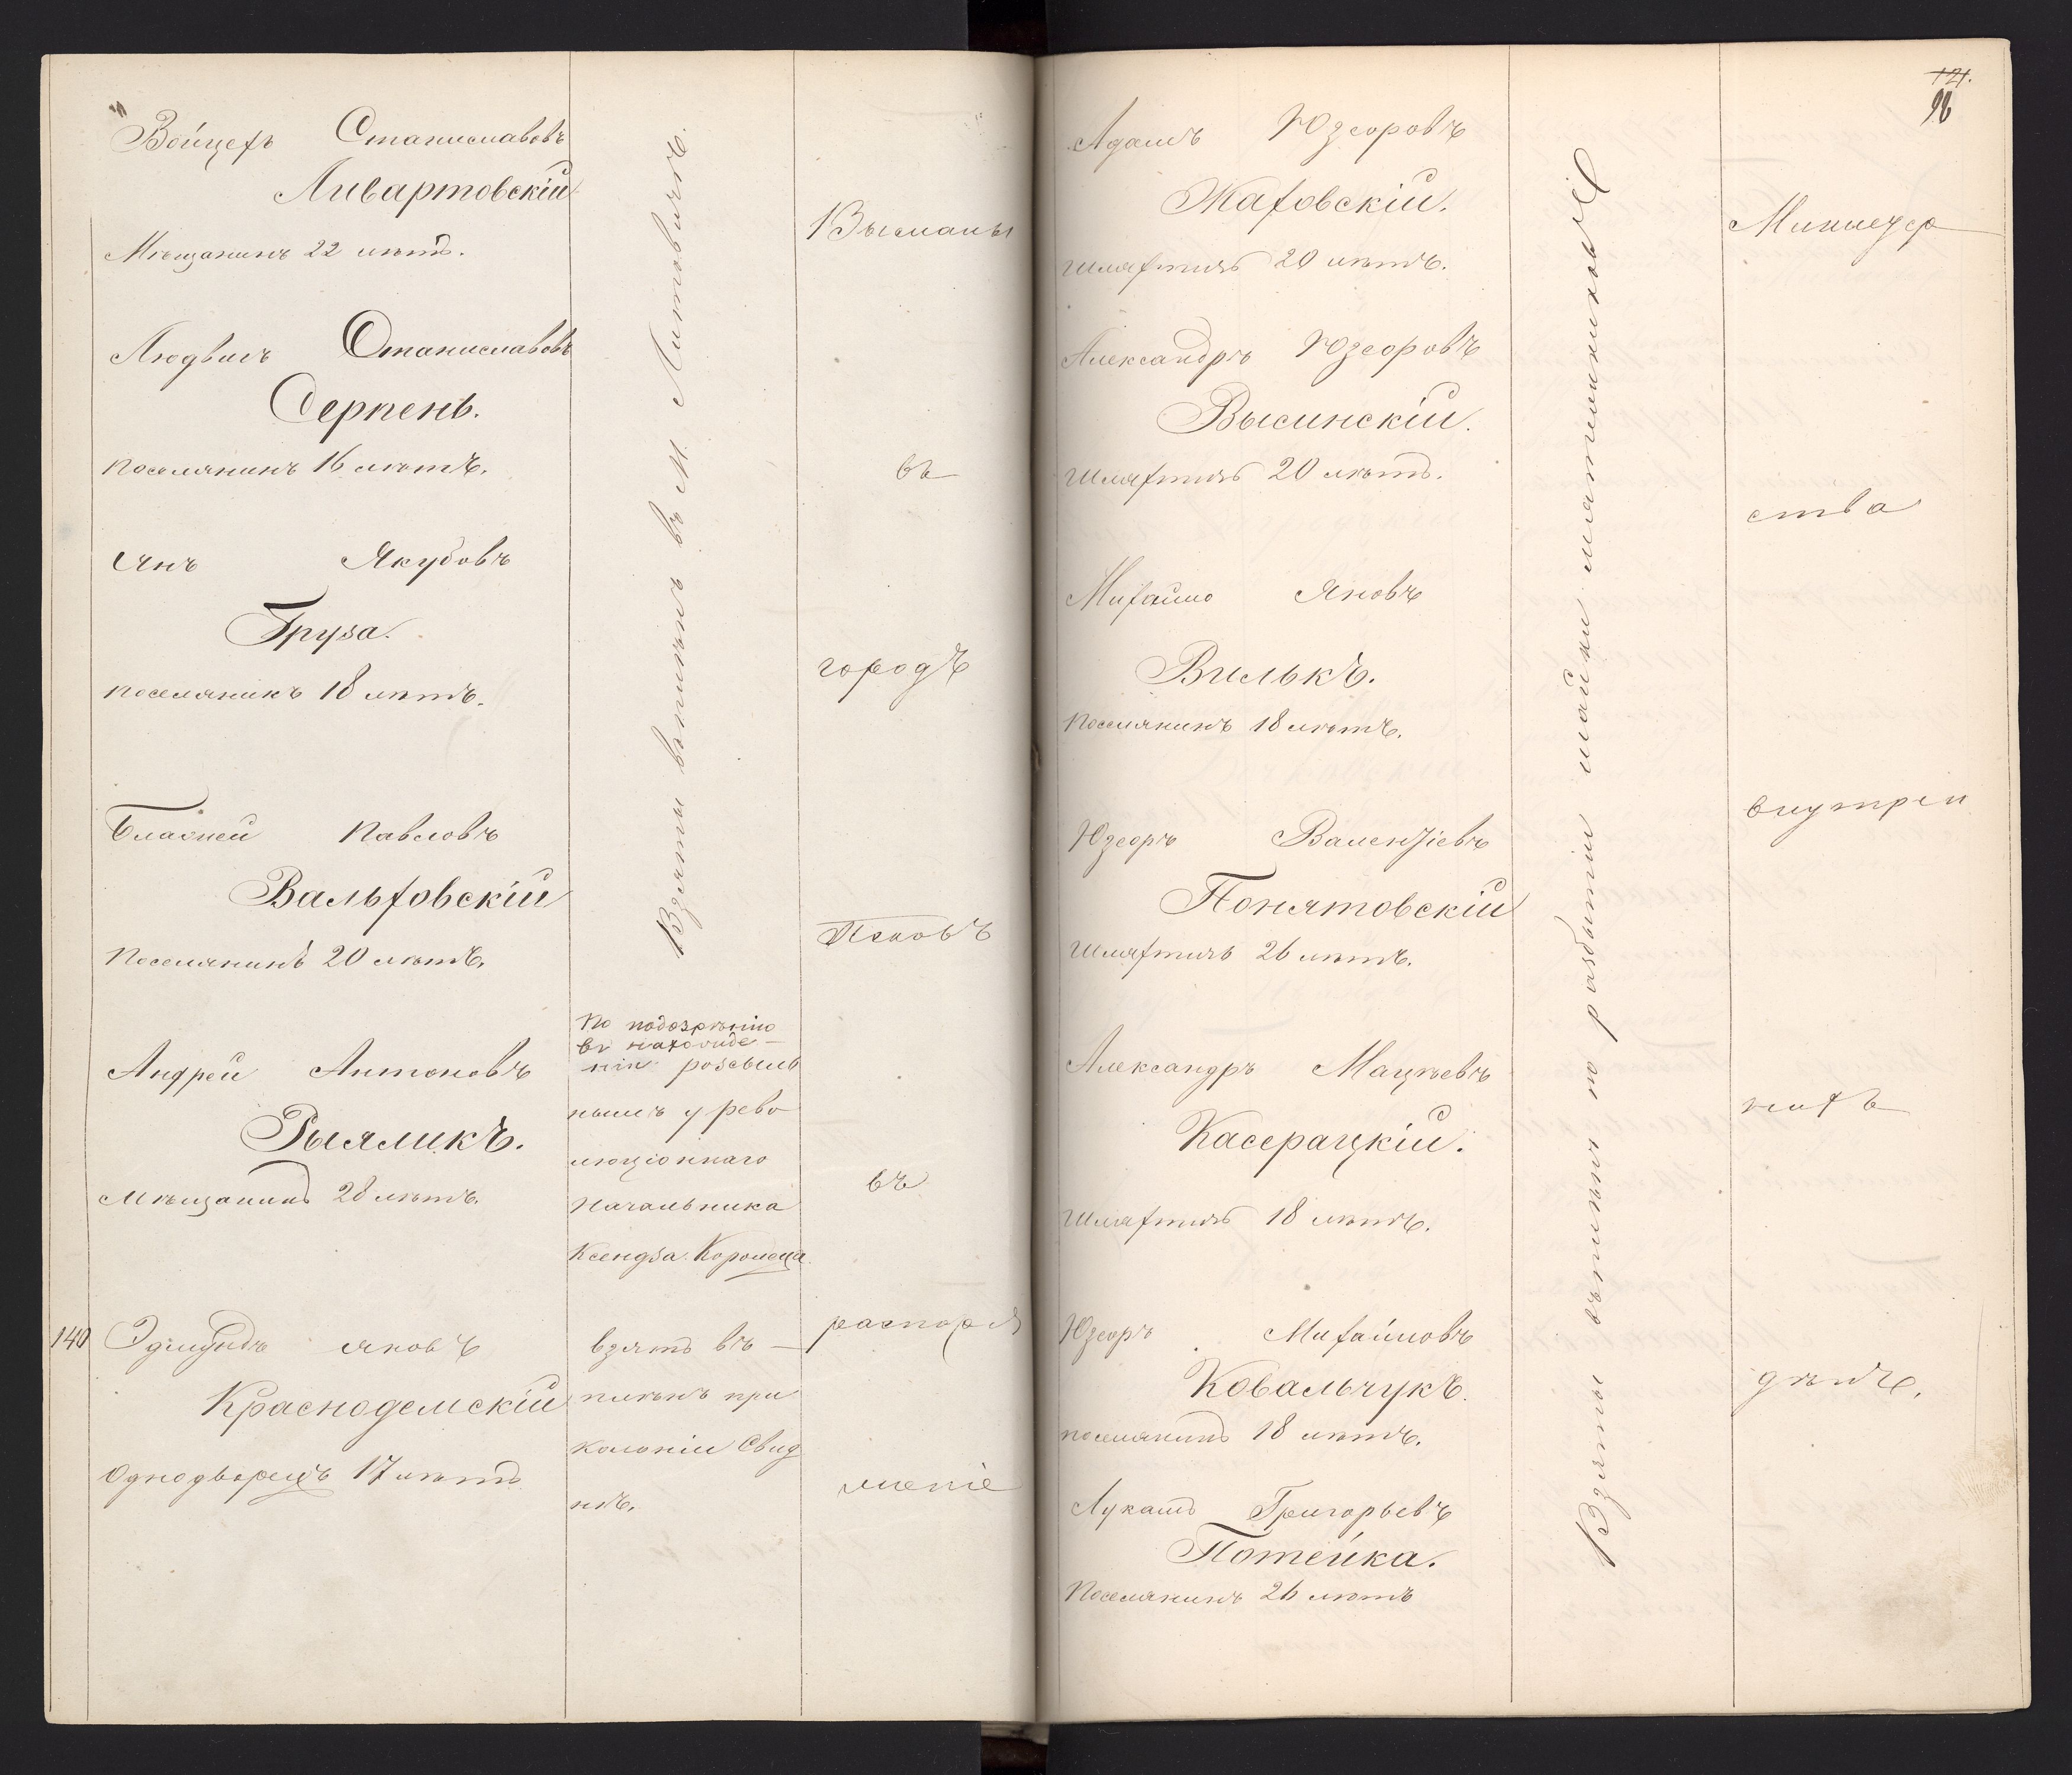 Войцехъ Станиславовъ
Ливартовскій
Мѣщанинъ 22 лѣтъ.
Людвигъ Станиславовъ
Серпень.
поселянинъ 16 лѣтъ.
Янъ Якубовъ
Груза.
поселянинъ 18 лѣтъ.
Блажей Павловъ
Вальховскій
Поселянинъ 20 лѣтъ.
Андрей Антоновъ
Рыямикъ.
Мѣщанинъ 28 лѣтъ.
140 Эдмундъ Яновъ
Краснодемскій
Однодворецъ 17 лѣтъ
Взяты въ плѣнъ въ М. Литовичѣ.
по подозрѣнію
въ нахожде-
ніи розсыль
нымъ у рево
люціоннаго
Начальника
Ксендза
взятъ въ
плѣнъ при
колоніи Свид
нѣ.
Высланы
въ
городъ
Псковъ
въ
распоря
женіе
121.
96
Адамъ Юзефовъ
Жаховскій.
шляхтичъ 20 лѣтъ.
Александръ Юзефовъ
Высинскій.
шляхтичъ 20 лѣтъ.
Михайло Яновъ
Вилькъ.
поселянинъ 18 лѣтъ.
Юзефъ Валентіевъ
Понятовскій
шляхтичъ 26 лѣтъ.
Александръ Мацѣевъ
Касерацкій.
шляхтичъ 18 лѣтъ.
Юзефъ Михайловъ
Ковальчукъ.
поселянинъ 18 лѣтъ.
Лукашъ Григорьевъ
Потейка.
Поселянинъ 26 лѣтъ
Взяты въ плѣнъ по разбитіи шайки мятежниковъ
Министер
ства
внутрен
нихъ
дѣлъ.